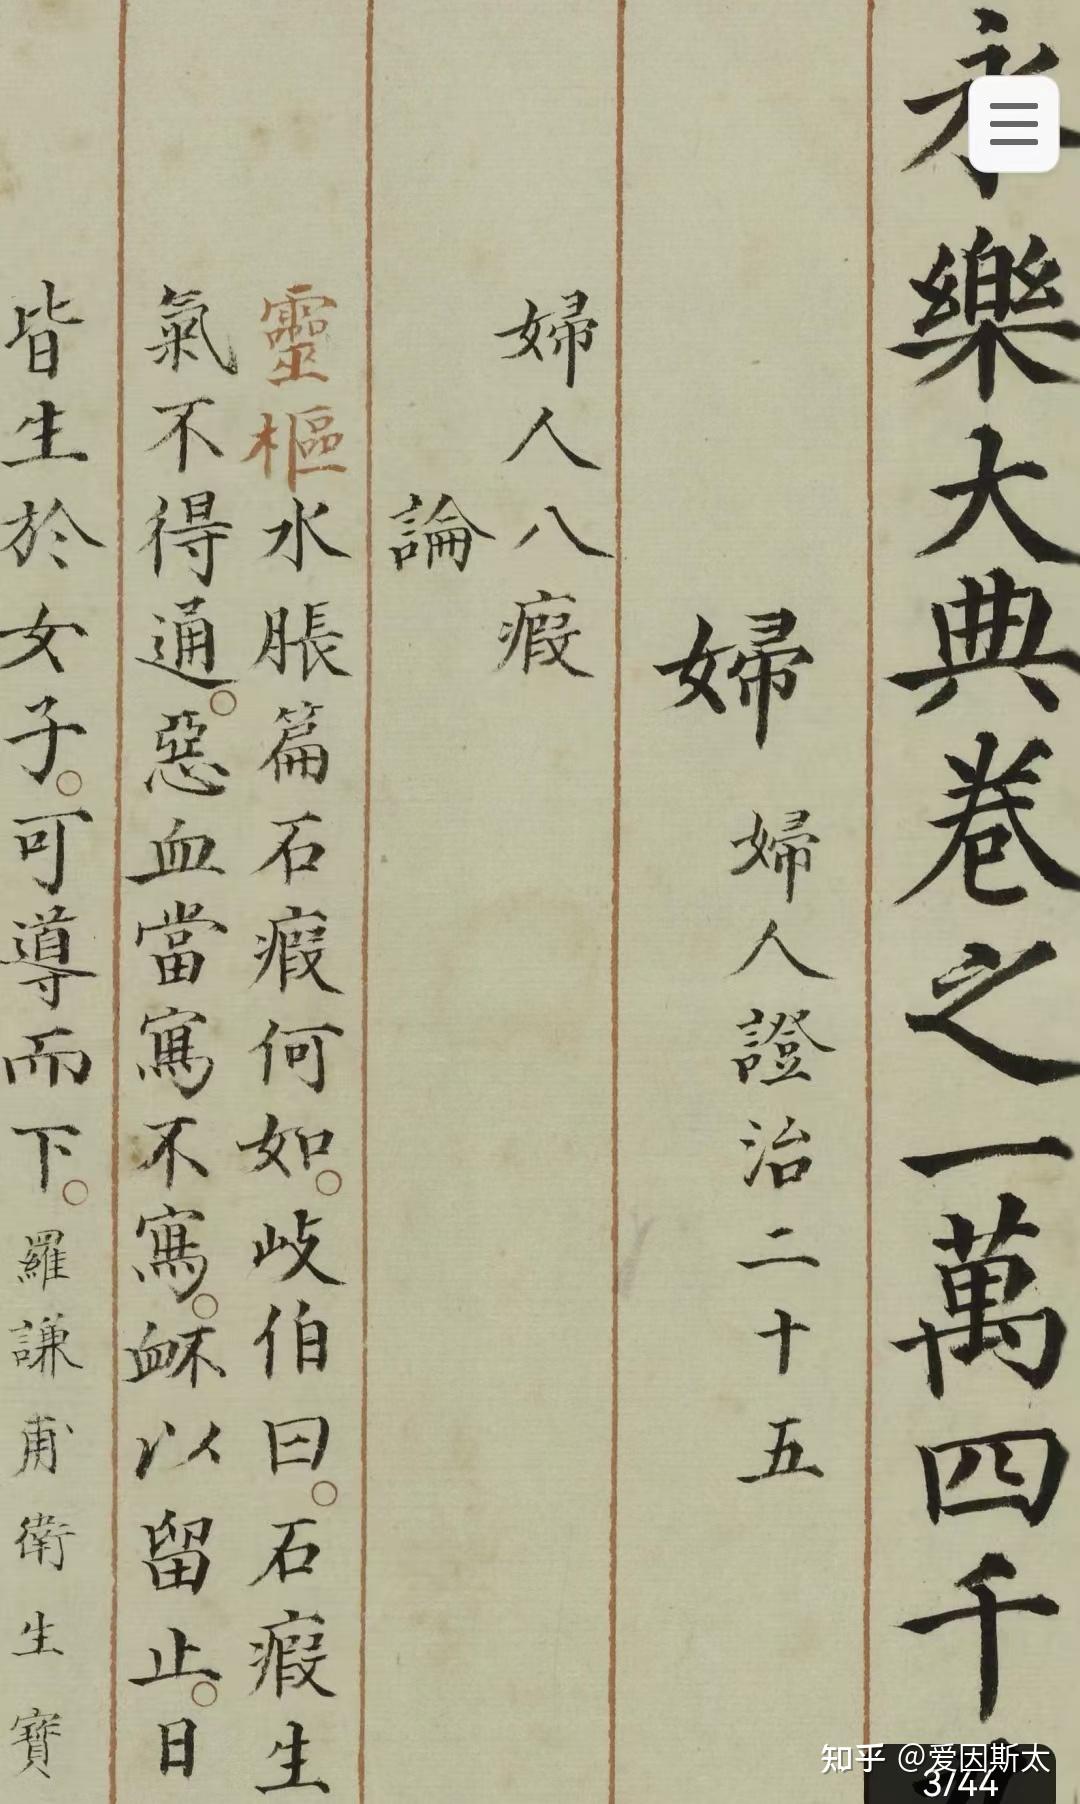 永樂大典卷之一萬四千
婦
婦人證治二十五
婦人八瘕
論
靈樞水脹篇石瘕何如。岐伯曰。石瘕生
氣不得通。惡血當寫不寫。衃以留止。日
皆生於女子。可導而下。羅謙甫衛生寶
知乎 @爱因斯太
3/44